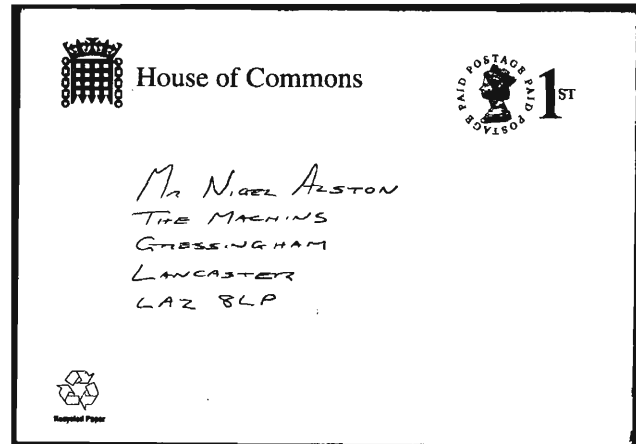 House of Commons
POSTAGE PAID POSTAGE PAID POSTAGE PAID
1ST
Mr Nigel Alston
The Machins
Gressingham
Lancaster
LA2 8LP
Recycled Paper